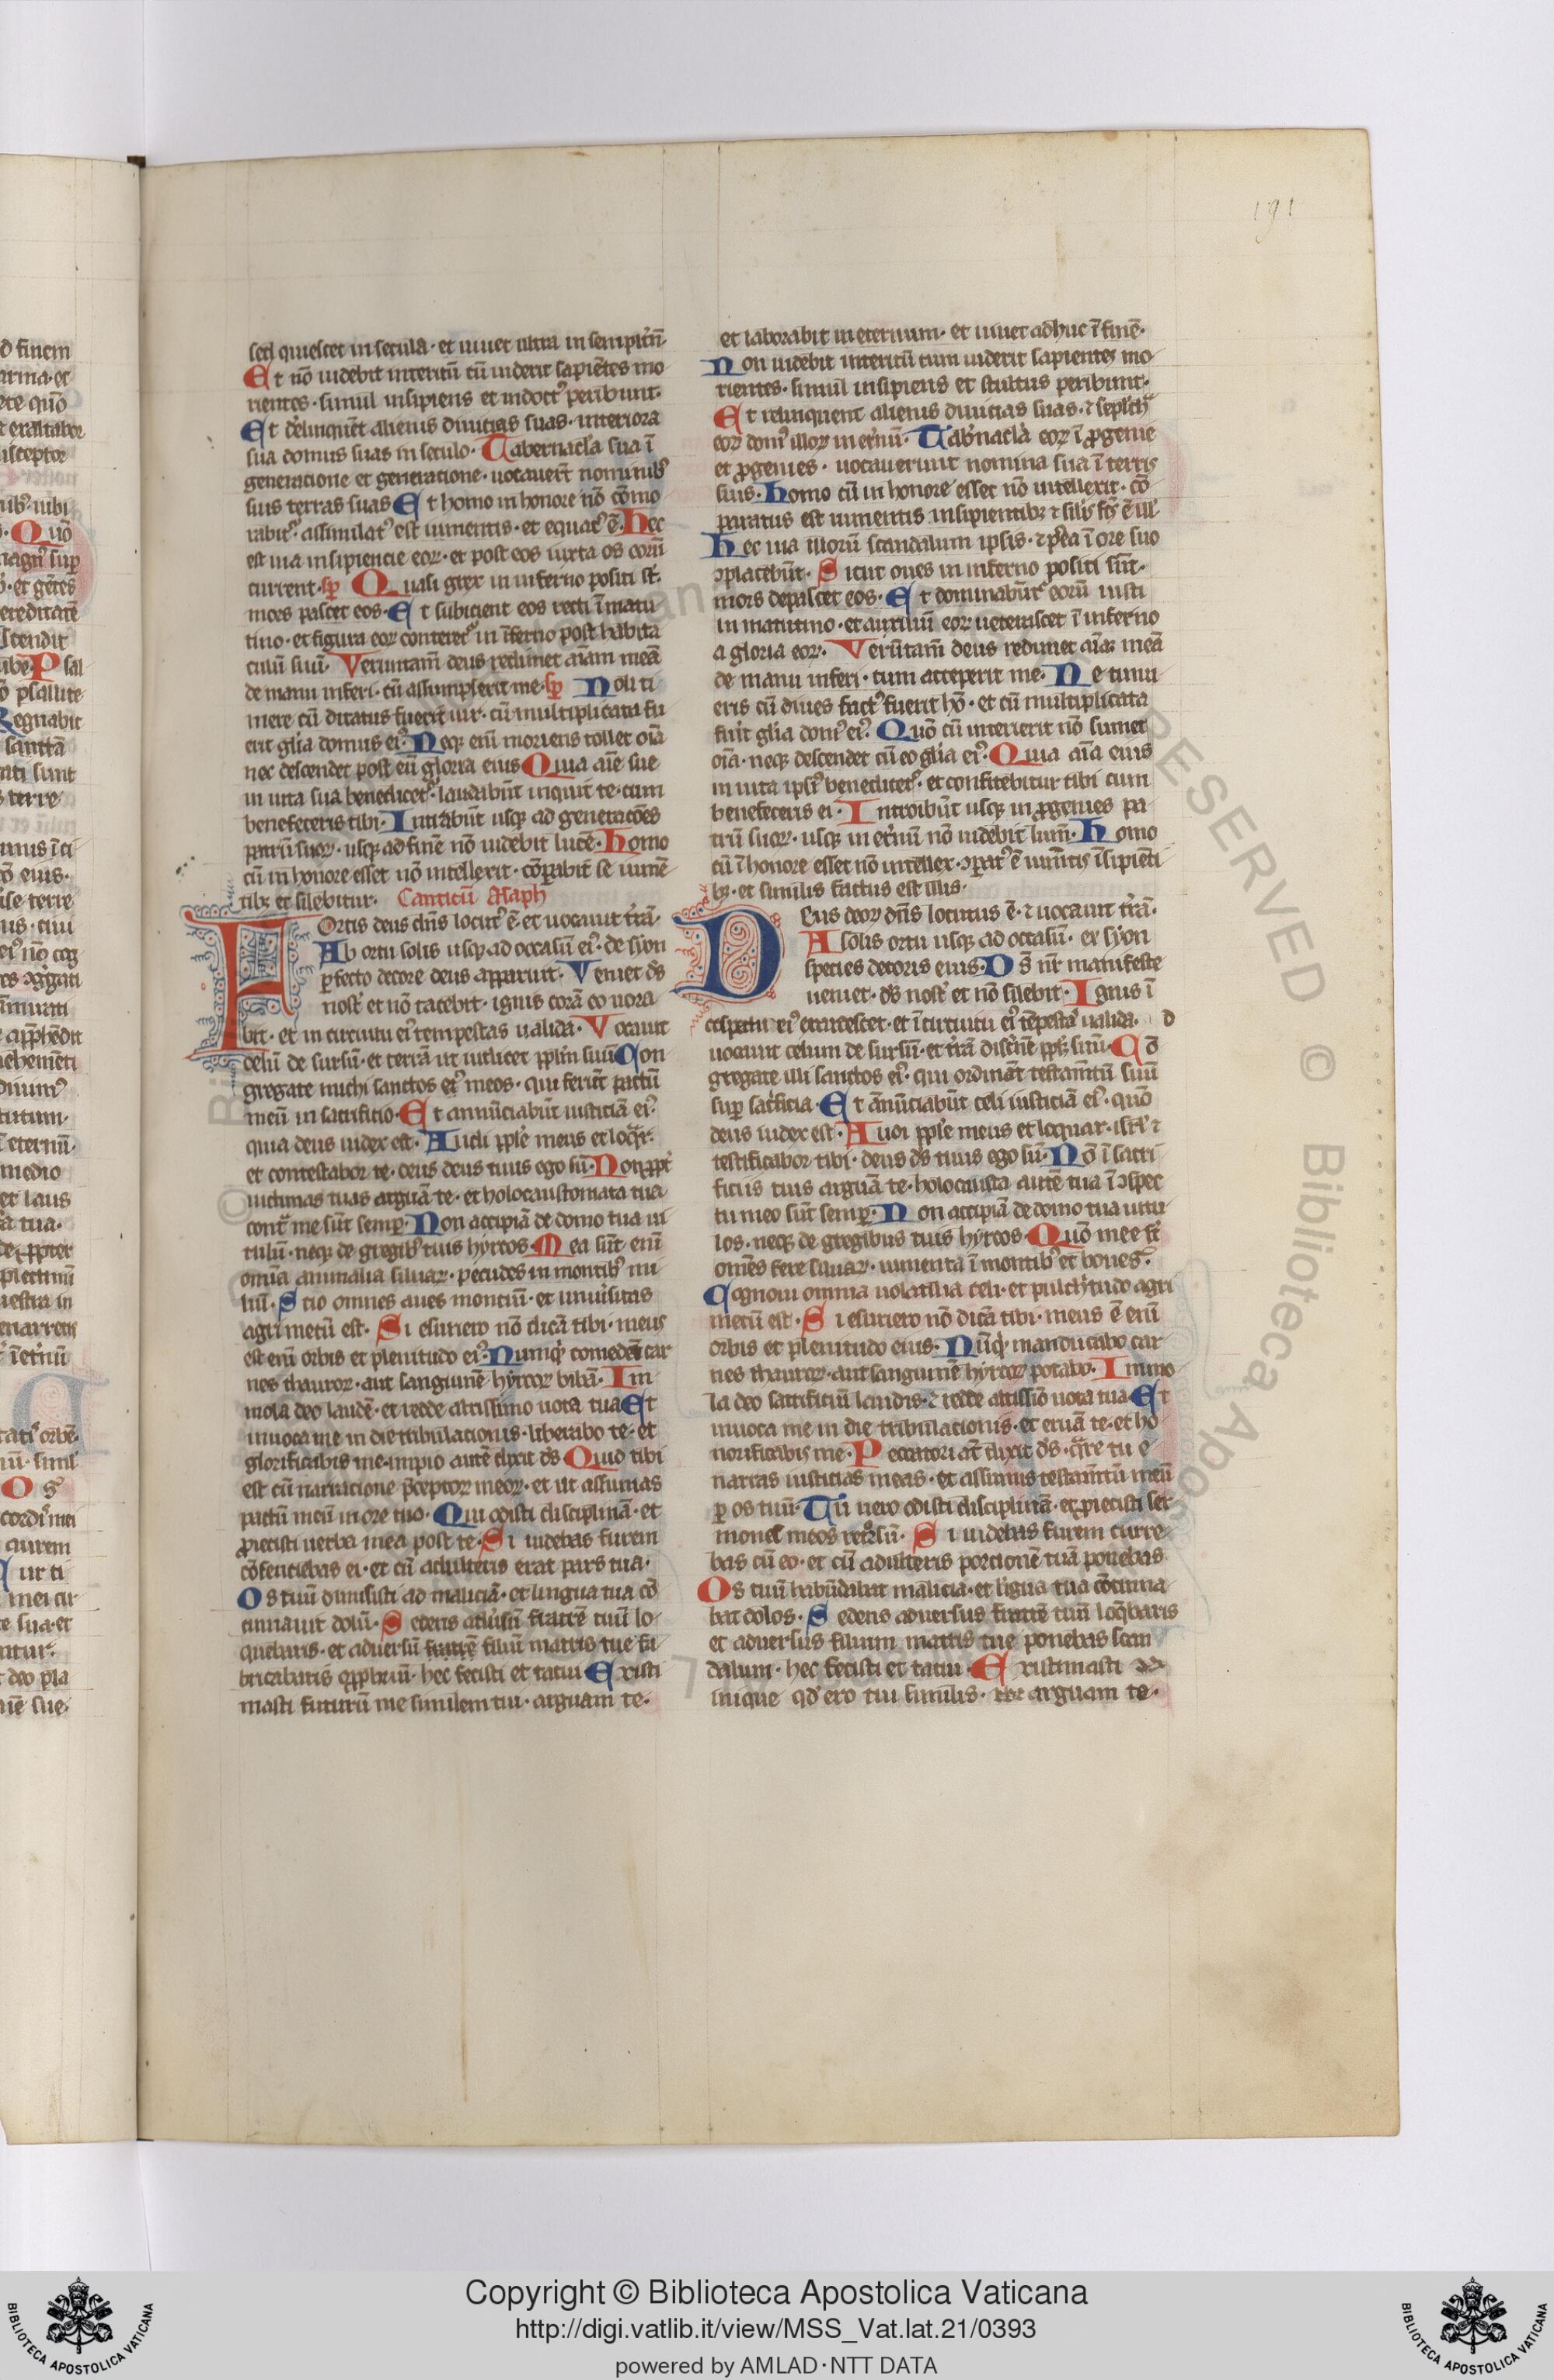 191
sed quiescet in secula · et uiuet ultra in sempit̃nũ·
Et nõ uidebit interitũ cũ uiderit sapiẽtes mo
rientes · simul insipiens et indoctꝰ peribunt·
Et delinquẽt alienis diuitias suas · interiora
sua domus suas in seculo · Tabernacl̃a sua ĩ
generacione et generacione · uocauer̃t nominibꝰ
suis terras suas Et homo in honore nõ cõmo
rabitꝰ · assimilatꝰ est iumentis · et equatꝰ ẽ · Hec
est uia insipiencie eoꝝ · et post eos iuxta os eorũ
current · sp̃ Quasi grex in inferno positi st̃·
mors pascet eos · Et subicient eos recti ĩ matu
tino · et figura eoꝝ conteret̃ in ĩferno post habita
culũ suũ · Verumtam̃ deus redimet aĩam meã
de manu inferi · cũ assumpserit me · sp̃ Noli ti
mere cũ ditatus fuerit uir · cũ multiplicata fu
erit gl̃ia domus eiꝰ · Neqꝫ enĩ moriens tollet oĩa
nec descendet post eũ gloria eius Quia aĩe sue
in uita sua benedicet̃ · laudabũt inquit te · cum
benefeceris tibi · Intrabũt usqꝫ ad generacões
patrũ suoꝝ · usqꝫ ad finẽ nõ uidebit lucẽ · Homo
cũ in honore esset nõ intellexit · cõpabit se iumẽ
tibꝫ et silebitur · Canticũ Asaph
Fortis deus dñs locutꝰ ẽ · et uocauit t̃rã·
Ab ortu solis usqꝫ ad occasũ eiꝰ · de syon
ꝑfecto decore deus apparuit · Veniet ds̃
nost̃ et nõ tacebit · ignis corã eo uora
bit · et in circuitu eiꝰ tempestas ualida · Vocauit
celũ de sursũ · et terrã ut iudicet pplm̃ suũ Con
gregate michi sanctos eiꝰ meos · qui feriũt pactũ
meũ in sacrificio · Et annũciabũt iusticiã eiꝰ
quia deus iudex est · Audi pple meus et loq̃r·
et contestabor te · deus deus tuus ego sũ · Non ppt̃
uictimas tuas arguã te · et holocaustomata tua
cont̃ me sũt semꝑ · Non accipiã de domo tua ui
tulũ · neqꝫ de gregibꝰ tuis hyrcos · Mea sũt enĩ
omĩa animalia siluaꝝ · pecudes in montibꝰ mi
liũ · Scio omnes aues montiũ · et uniũsitas
agri mecũ est · Si esuriero nõ dicã tibi · meus
est enĩ orbis et plenitudo eiꝰ · Numqꝫ comedã car
nes thauroꝝ · aut sanguinẽ hyrcoꝝ bibã · Im
mola deo laudẽ · et redde altissimo uota tua Et
inuoca me in die tribulacionis · liberabo te · et
glorificabis me · impio autẽ dixit ds̃ Quid tibi
est cũ narracione p̃ceptoꝝ meoꝝ · et ut assumas
pactũ meũ in ore tuo · Qui odisti disciplinã · et
ꝓiecisti uerba mea post te · Si uidebas furem
cõsentiebas ei · et cũ adulteris erat pars tua·
Os tuũ dimisisti ad maliciã · et lingua tua cõ
cinnauit dolũ · Sedens aduũsũ fratrẽ tuũ lo
quebaris · et aduersũ filiũ matris tue fa
bricabaris opprbriũ · hec fecisti et tacui Existi
masti futurũ me similem tui · arguam te·
et laborabit in eternum · et uiuet adhuc ĩ finẽ·
Non uidebit interitũ cum uiderit sapientes mo
rientes · simul insipiens et stultus peribunt·
Et relinquent alienis diuicias suas · ⁊ sepl̃ch̃
eoꝝ domꝰ illoꝝ in et̃nũ · Tab̃nacl̃a eoꝝ ĩ ꝓgenie
et ꝓgenies · uocauerunt nomina sua ĩ terris
suis · Homo cũ in honore esset nõ intellexit · cõ
paratus est iumentis insipientibꝫ ⁊ silis fcs̃ ẽ ill̃
Hec uia illorũ scandalum ipsis · ⁊ p̃ea ĩ ore suo
ↄplacebũt · Sicut oues in inferno positi sũt·
mors depascet eos · Et dominabũt̃ eorũ iusti
in matutino · et auxiliũ eoꝝ ueterascet ĩ inferno
a gloria eoꝝ · Verũtam̃ deus redimet aĩaꝫ meã
de manu inferi · cum acceperit me · Ne timu
eris cũ diues factꝰ fuerit hõ · et cũ multiplicata
fuit gl̃ia domꝰ eiꝰ Quõ cũ interierit nõ sumet
oĩa · neqꝫ descendet cũ eo gl̃ia eiꝰ · Quia aĩa eius
in uita ipsiꝰ benedicet̃ · et confitebitur tibi cum
benefeceris ei · Introibũt usqꝫ in ꝓgenies pa
trũ suoꝝ · usqꝫ in et̃nũ nõ uidebit lum̃ · Homo
cũ ĩ honore esset nõ intellex̃ · ↄpatꝰ ẽ ium̃tis ĩsipiẽti
bꝫ · et similis factus est illis·
Deus deoꝝ dñs locutus ẽ · ⁊ uocauit t̃rã·
A solis ortu usqꝫ ad occasũ · ex syon
species decoris eius · Ds̃ nr̃ manifeste
ueniet · ds̃ nost̃ et nõ silebit · Ignis ĩ
cõspectu eiꝰ exardescet · et ĩ circuitu eiꝰ tẽpestaꝰ ualida·
uocauit celum de sursũ · et t̃rã disc̃nẽ pplm̃ suũ · Cõ
gregate illi sanctos eiꝰ · qui ordinãt testam̃tũ suũ
suꝑ sac̃ficia · Et ãnũciabũt celi iusticiã eiꝰ · quõ
deus iudex est · Audi pple meus et loquar · isrl̃ ⁊
testificabor tibi · deus ds̃ tuus ego sũ · Nõ ĩ sacri
ficiis tuis arguã te · holocausta autẽ tua ĩ ↄspec
tu meo sũt semꝑ · Non accipiã de domo tua uitu
los · neqꝫ de gregibus tuis hyrcos · Quõ mee st̃
omẽs fere siluaꝝ · iumenta ĩ montibꝰ et boues·
Cognoui omnia uolatilia celi · et pulch̃tudo agri
mecũ est · Si esuriero nõ dicã tibi · meus ẽ enĩ
orbis et plenitudo eius · Nũqꝫ manducabo car
nes thauroꝝ · aut sanguinẽ hyrcoꝝ potabo · Immo
la deo sacrificiũ laudis · ⁊ redde altissiõ uota tua Et
inuoca me in die tribulacionis · et eruã te · et ho
norificabis me · Peccatori at̃ dixit ds̃ · q̃re tu e
narras iusticias meas · et assumis testam̃tũ meũ
ꝑ os tuũ · Tũ uero odisti disciplinã · et ꝓiecisti ser
mones meos ret̃rsũ · Si uidebas furem curre
bas cũ eo · et cũ adulteris porcionẽ tuã ponebas
Os tuũ habũdabat malicia · et lĩgua tua cõcinna
bat dolos · Sedens aduersus fratrẽ tuũ loq̃baris
et aduersus filium matris tue ponebas scan
dalum · hec fecisti et tacui · Existimasti
inique qd̃ ero tui similis · arguam te·
Copyright © Biblioteca Apostolica Vaticana
http://digi.vatlib.it/view/MSS_Vat.lat.21/0393
powered by AMLAD·NTT DATA
BIBLIOTECA APOSTOLICA VATICANA
BIBLIOTECA APOSTOLICA VATICANA